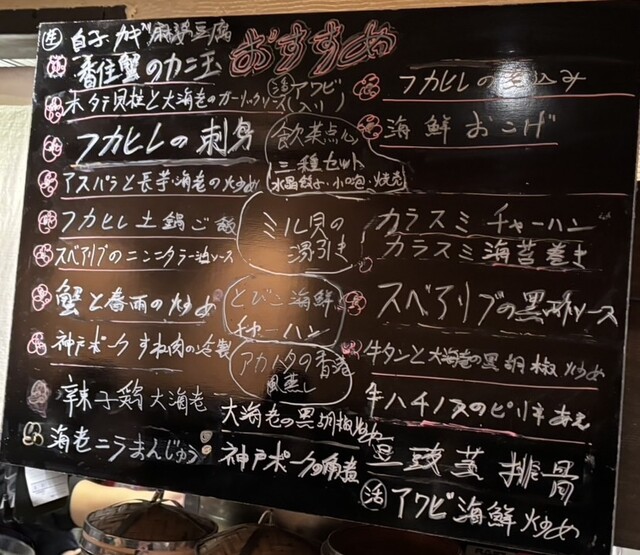 おすすめ
生 白子 カキ 麻婆豆腐
香住蟹のカニ玉
ホタテ貝柱と大海老のガーリックソース
活アワビ
入り
フカヒレの刺身
アスパラと長芋海老の炒め
フカヒレ土鍋ご飯
スペアリブのニンニクラー油ソース
蟹と春雨の炒め
神戸ポークすね肉の冷製
辣子鶏 大海老
海老ニラまんじゅう
飲茶点心
三種セット
水晶餃子・小ロ包・焼売
ミル貝の
湯引き
とびこ海鮮
チャーハン
アカハタの香港
蒸し
大海老の黒胡椒炒め
神戸ポークの角煮
フカヒレの煮込み
海鮮おこげ
カラスミチャーハン
カラスミ海苔巻き
スペアリブの黒酢ソース
牛タンと大海老の黒胡椒炒め
牛ハチノスのピリ辛あえ
豆豉蒸排骨
活アワビ海鮮炒め